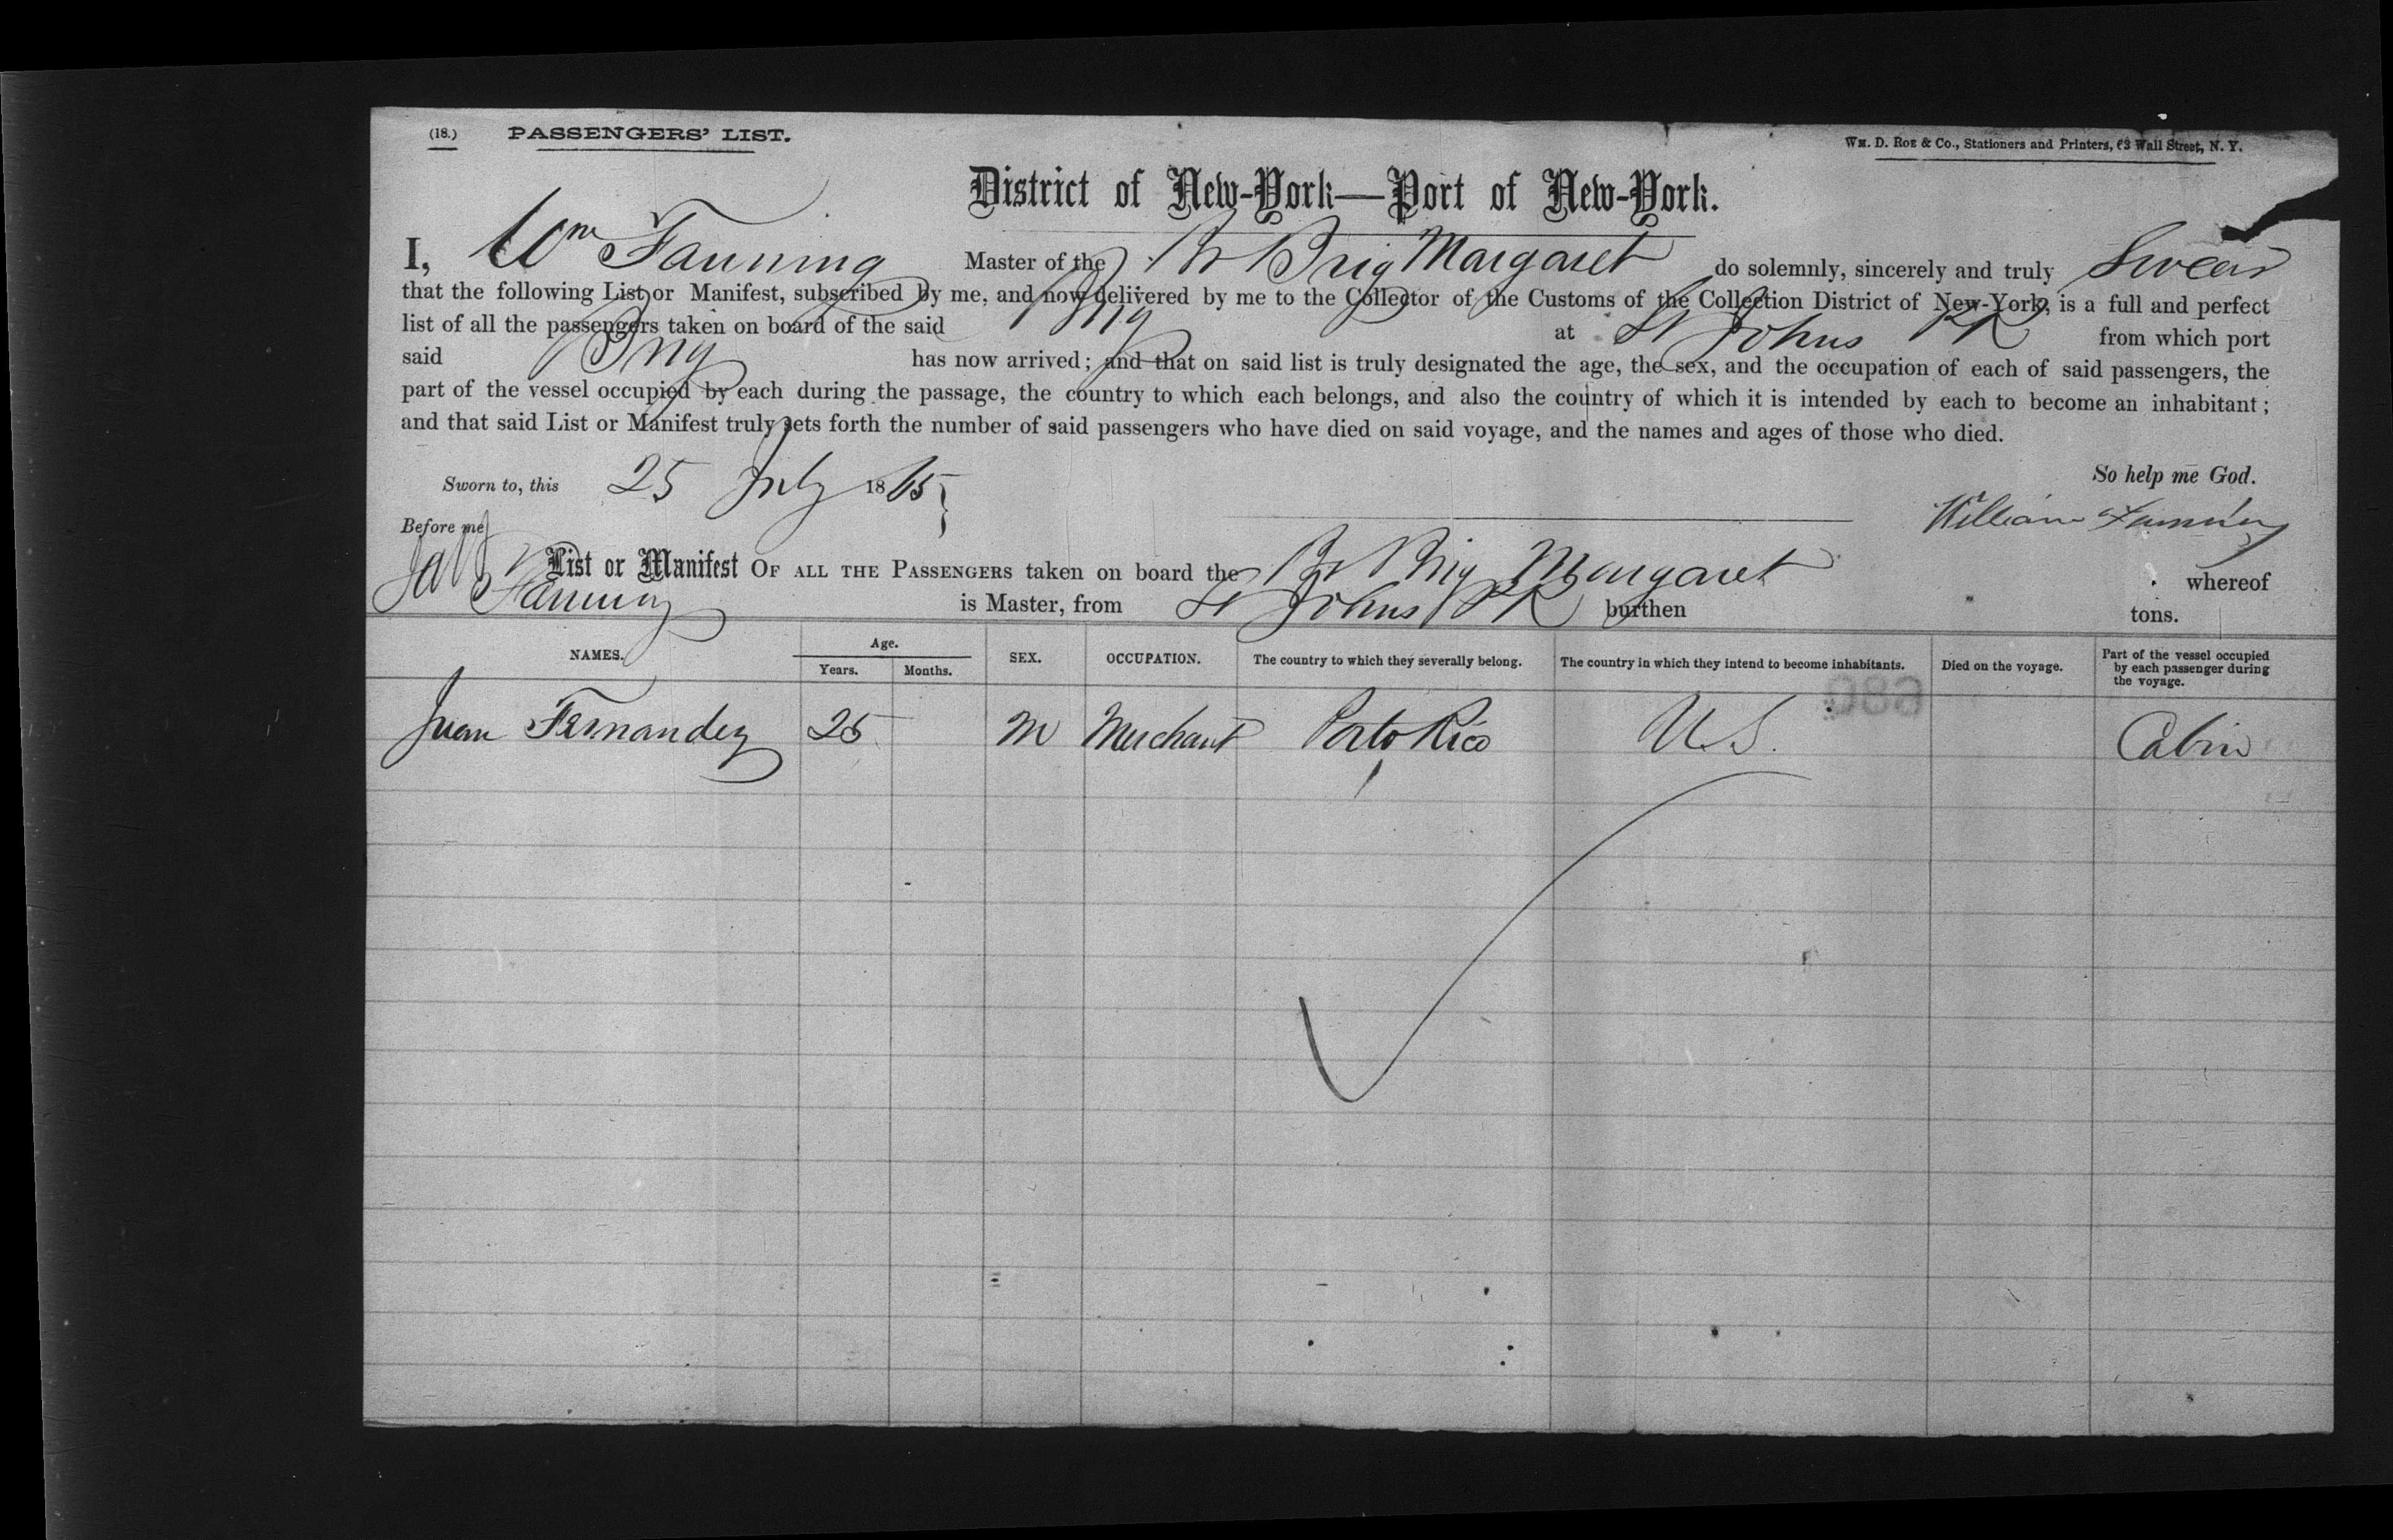 (18.) PASSENGERS' LIST.
WM. D. ROE & CO., Stationers and Printers, 63 Wall Street, N. Y.
District of New-York—Port of New-York.
I, Wm Fanning Master of the Br Brig Margaret do solemnly, sincerely and truly Swear
that the following List or Manifest, subscribed by me, and now delivered by me to the Collector of the Customs of the Collection District of New-York, is a full and perfect
list of all the passengers taken on board of the said Brig at St Johns PR from which port
said Brig has now arrived; and that on said list is truly designated the age, the sex, and the occupation of each of said passengers, the
part of the vessel occupied by each during the passage, the country to which each belongs, and also the country of which it is intended by each to become an inhabitant;
and that said List or Manifest truly sets forth the number of said passengers who have died on said voyage, and the names and ages of those who died.
So help me God.
Sworn to, this 25 July 1865
William Fanning
Before me
List or Manifest OF ALL THE PASSENGERS taken on board the Br Brig Margaret whereof
Fanning is Master, from St Johns PR burthen tons.
NAMES. Age. Years. Months. SEX. OCCUPATION. The country to which they severally belong. The country in which they intend to become inhabitants. Died on the voyage. Part of the vessel occupied by each passenger during the voyage.
Juan Fernandez 25 M Merchant Porto Rico U.S. Cabin